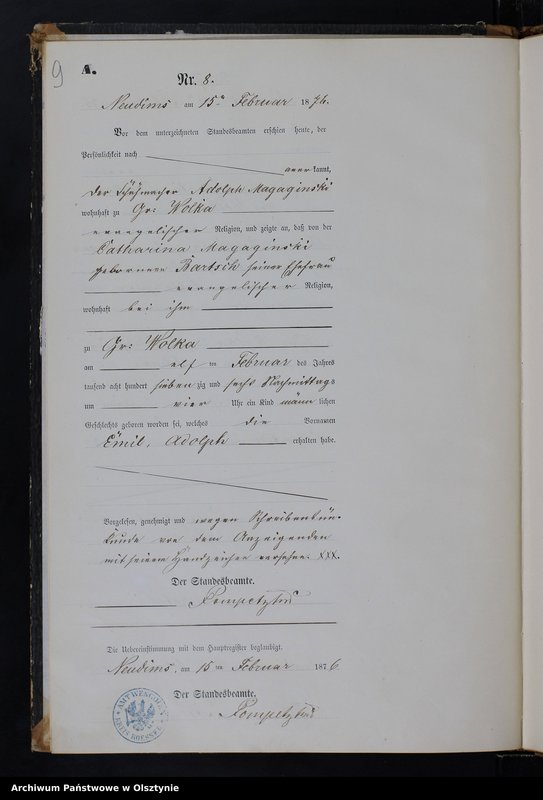 9
A.
Nr. 8.
Neudims am 15ten Februar 1876.
Vor dem unterzeichneten Standesbeamten erschien heute, der
Persönlichkeit nach
kannt,
der Schuhmacher Adolph Magaginski
wohnhaft zu Gr: Wolka
evangelischer Religion, und zeigte an, daß von der
Catharina Magaginski
geborenen Bartsch seiner Ehefrau
evangelischer Religion,
wohnhaft bei ihm
zu Gr: Wolka
am elf ten Februar des Jahres
tausend acht hundert sieben zig und sechs Nachmittags
um vier Uhr ein Kind männ lichen
Geschlechts geboren worden sei, welches die Vornamen
Emil, Adolph erhalten habe.
Vorgelesen, genehmigt und wegen Schreibensun-
kunde von dem Anzeigenden
mit seinem Handzeichen versehen. XXX.
Der Standesbeamte.
Die Uebereinstimmung mit dem Hauptregister beglaubigt.
Neudims, am 15 ten Februar 1876
Der Standesbeamte.
AMT WENGOYEN
KREIS ROESSEL
Archiwum Państwowe w Olsztynie